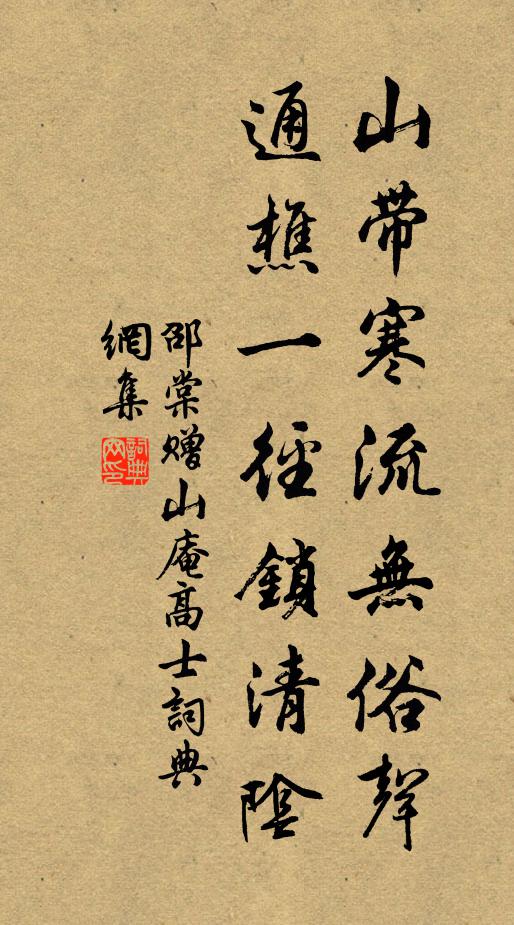 山帶寒流無俗聲
通樵一徑鎖清陰
邵棠贈山庵高士詞典
網集
詞典網印